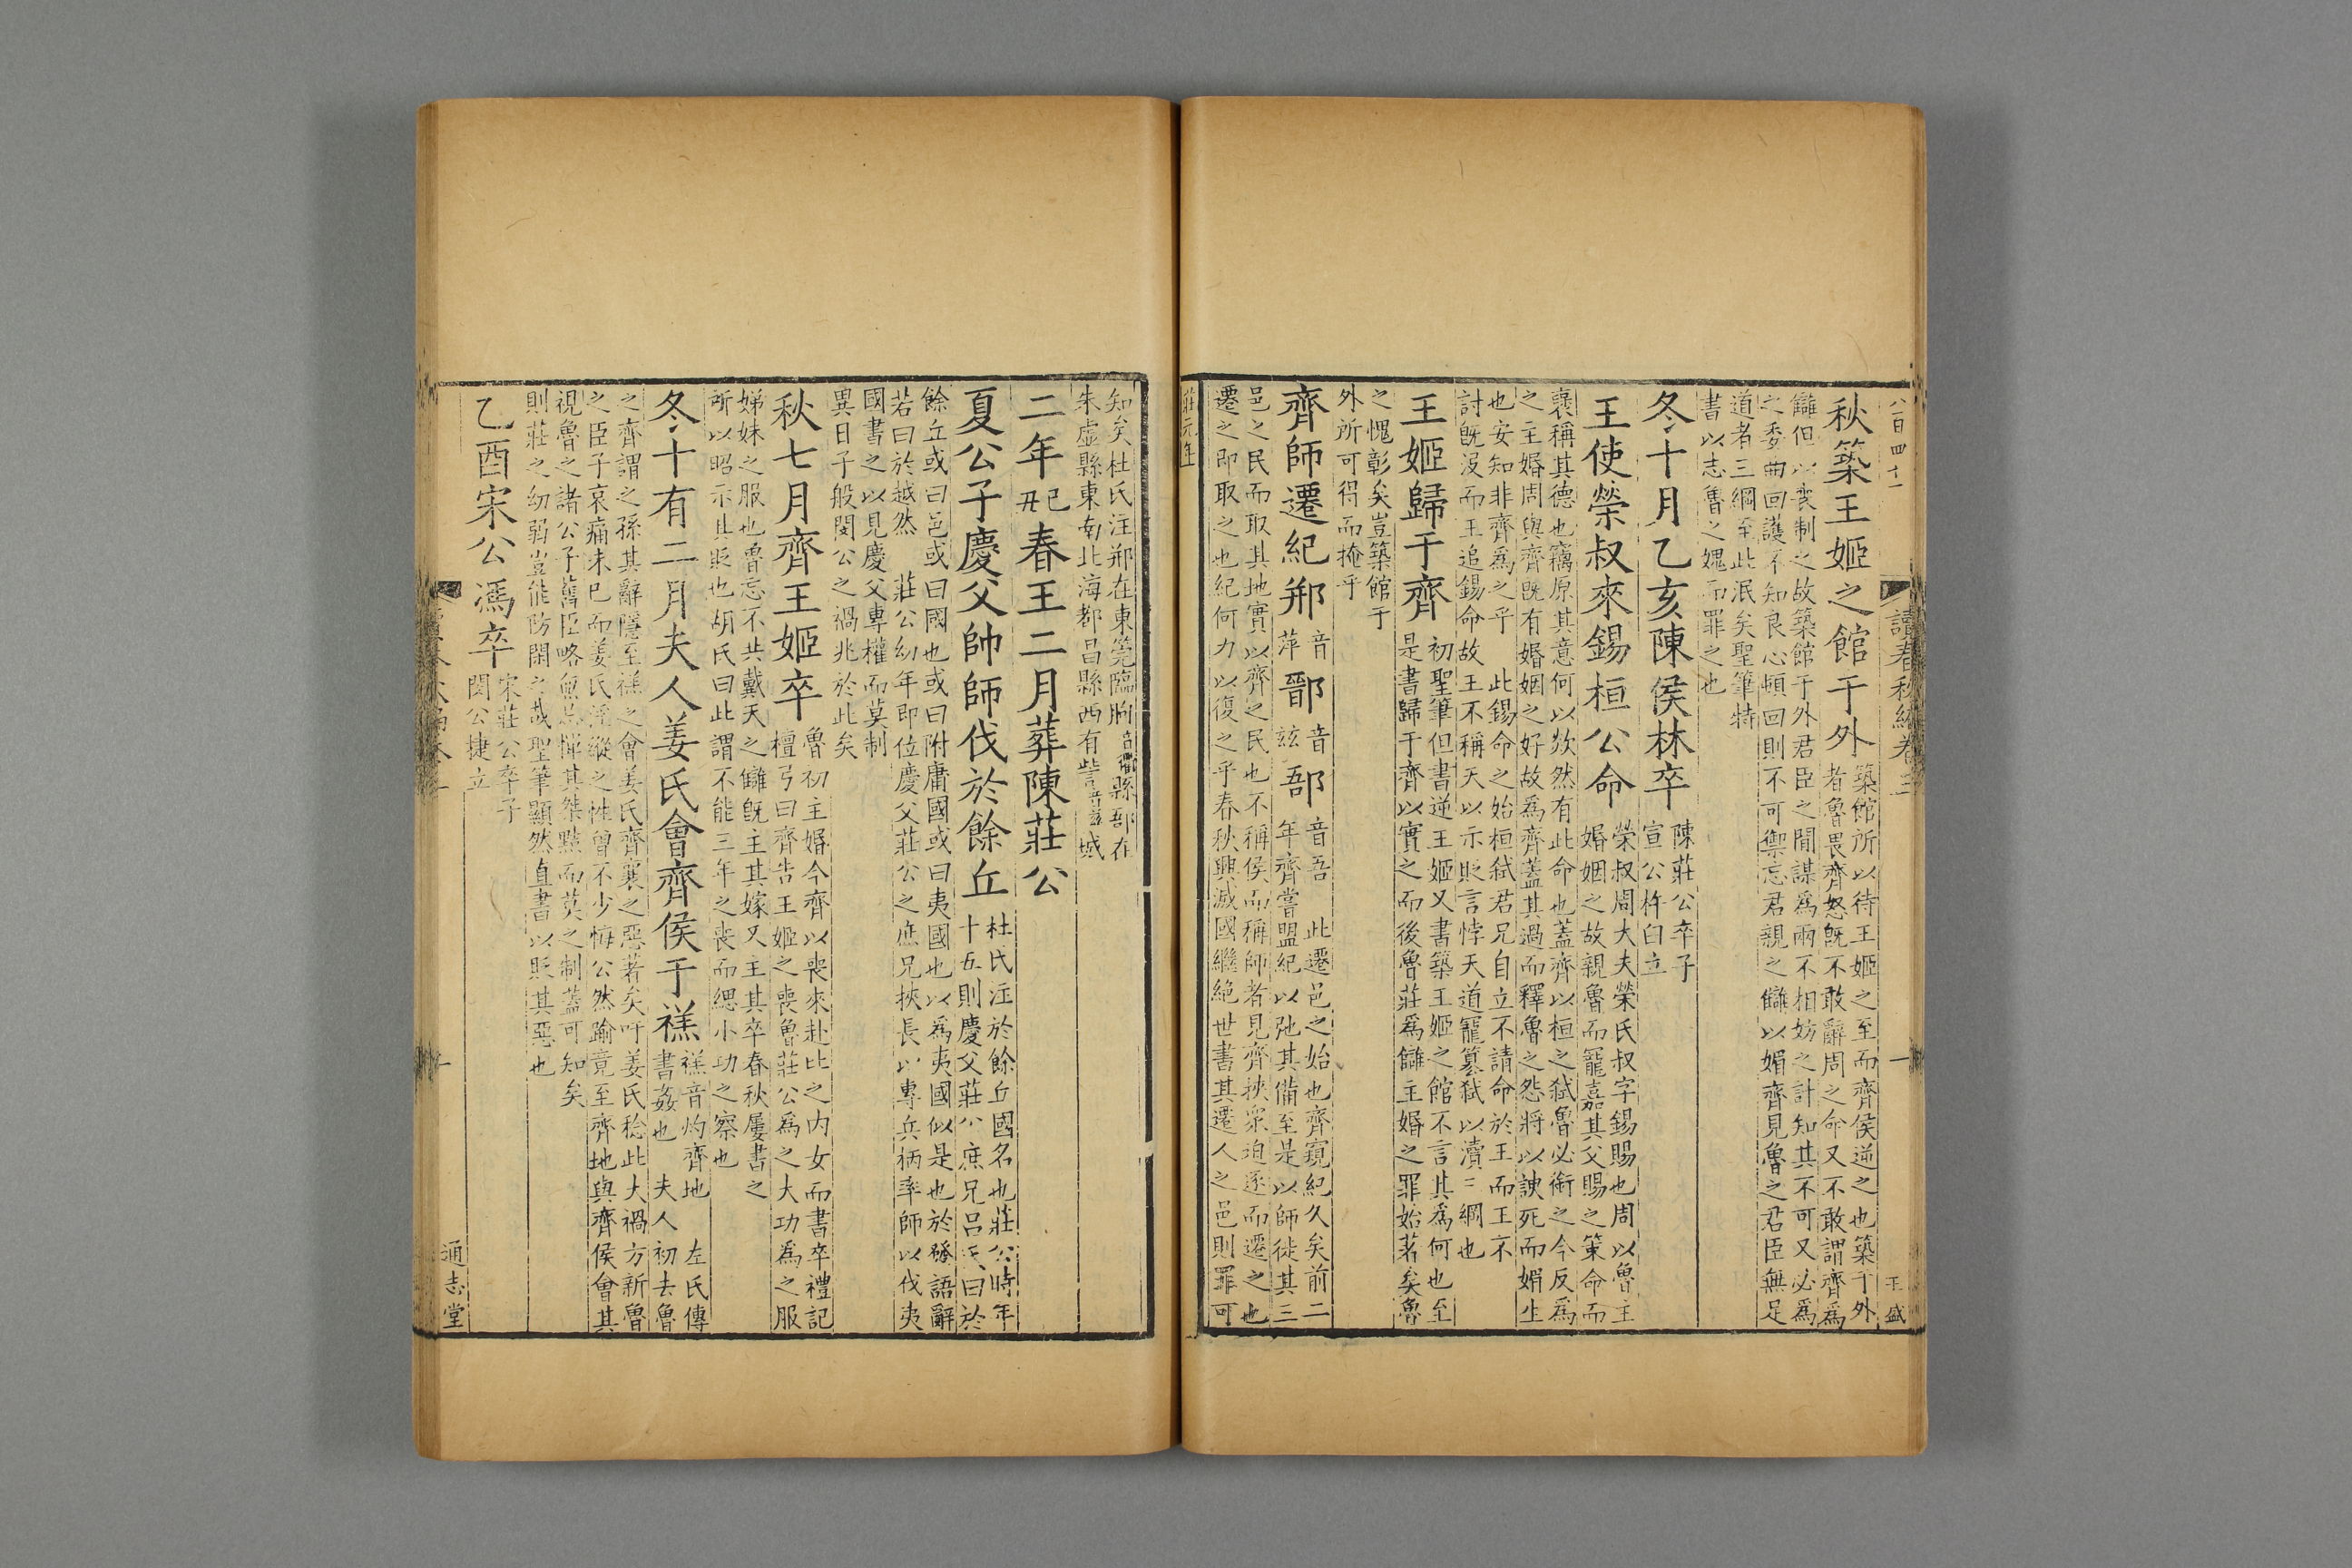 八百四十一
讀春秋編卷三
一
王盛
秋築王姬之館于外 築館所以待王姬之至而齊侯逆之也築于外
者魯畏齊怒既不敢辭周之命又不敢謂齊爲
讎但以喪制之故築館于外君臣之間謀爲兩不相妨之計知其不可又必爲
之委曲回護不知良心頓回則不可禦忘君親之讎以媚齊見魯之君臣無足
道者三綱至此泯矣聖筆特
書以志魯之媿而罪之也
冬十月乙亥陳侯林卒 陳莊公卒子
宣公杵臼立
王使榮叔來錫桓公命 榮叔周大夫榮氏叔字錫賜也周以魯主
婚姻之故親魯而寵嘉其父賜之策命而
褒稱其德也竊原其意何以欻然有此命也蓋齊以桓之弑魯必銜之今反爲
之主婚周與齊旣有婚姻之好故爲齊蓋其過而釋魯之怨將以諛死而媚生
也安知非齊爲之乎 此錫命之始桓弑君兄自立不請命於王而王不
討旣沒而王追錫命故王不稱天以示貶言悖天道寵篡弑以瀆三綱也
王姬歸于齊 初聖筆但書逆王姬又書築王姬之館不言其爲何也至
是書歸于齊以實之而後魯莊爲讎主婚之罪始著矣魯
之愧彰矣豈築館于
外所可得而掩乎
齊師遷紀郱 音萍 鄑 音玆 郚 音吾 此遷邑之始也齊窺紀久矣前二
年齊嘗盟紀以弛其備至是以師徙其三
邑之民而取其地實以齊之民也不稱侯而稱師者見齊挾衆迫逐而遷之也
遷之即取之也紀何力以復之乎春秋興滅國繼絶世書其遷人之邑則罪可
莊元年
知矣杜氏注郱在東莞臨朐 音衢 縣郚在
朱虛縣東南北海都昌縣西有訾 音玆 城
二年 己丑 春王二月葬陳莊公
夏公子慶父帥師伐於餘丘 杜氏注於餘丘國名也莊公時年
十五則慶父莊公庶兄呂氏曰於
餘丘或曰邑或曰國也或曰附庸國或曰夷國也以爲夷國似是也於發語辭
若曰於越然 莊公幼年即位慶父莊公之庶兄挾長以專兵柄率師以伐夷
國書之以見慶父專權而莫制
異日子般閔公之禍兆於此矣
秋七月齊王姬卒 魯初主婚今齊以喪來赴比之內女而書卒禮記
檀弓曰齊告王姬之喪魯莊公爲之大功爲之服
娣妹之服也魯忘不共戴天之讎旣主其嫁又主其卒春秋屢書之
所以昭示其貶也胡氏曰此謂不能三年之喪而緦小功之察也
冬十有二月夫人姜氏會齊侯于禚 禚音灼齊地 左氏傳
書姦也 夫人初去魯
之齊謂之孫其辭隱至禚之會姜氏齊襄之惡著矣吁姜氏稔此大禍方新魯
之臣子哀痛未已而姜氏淫縱之性曾不少悔公然踰竟至齊地與齊侯會其
視魯之諸公子舊臣略無忌憚其桀黠而莫之制蓋可知矣
則莊之幼弱豈能防閑之哉聖筆顯然直書以貶其惡也
乙酉宋公馮卒 宋莊公卒子
閔公捷立
通志堂